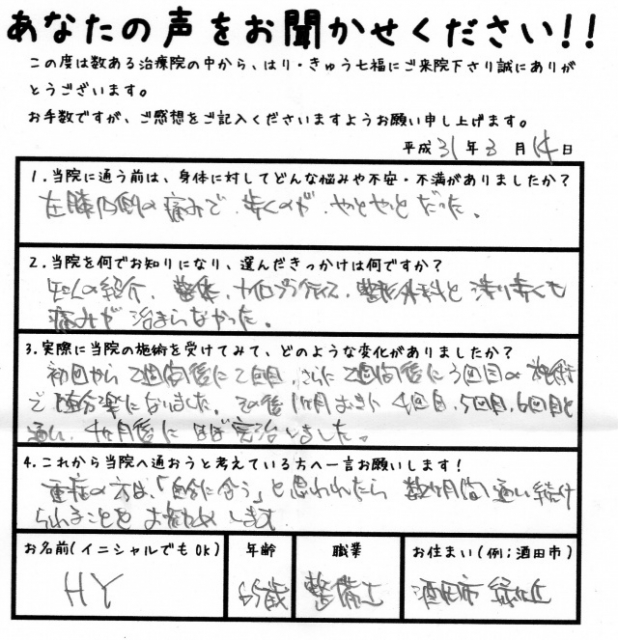 あなたの声をお聞かせください!!
この度は数ある治療院の中から、はり・きゅう七福にご来院下さり誠にありが
とうございます。
お手数ですが、ご感想をご記入くださいますようお願い申し上げます。
平成31年3月14日
1.当院に通う前は、身体に対してどんな悩みや不安・不満がありましたか？
左膝内側の痛みで、歩くのが、やっとやっとだった。
2.当院を何でお知りになり、選んだきっかけは何ですか？
知人の紹介、整体、カイロプラクティス、整形外科と渡り歩くも
痛みが治まらなかった。
3.実際に当院の施術を受けてみて、どのような変化がありましたか？
初回から2週間後に2回目、さらに2週間後に3回目の施術
で随分楽になりました。その後1ヶ月おきに4回目、5回目、6回目と
通い、4ヶ月後にほぼ完治しました。
4.これから当院へ通おうと考えている方へ一言お願いします！
重症の方は、「自分に合う」と思われたら数ヶ月間通い続け
られることをお勧めします
お名前(イニシャルでもOK) 年齢 職業 お住まい(例；酒田市)
HY 65歳 整備士 酒田市